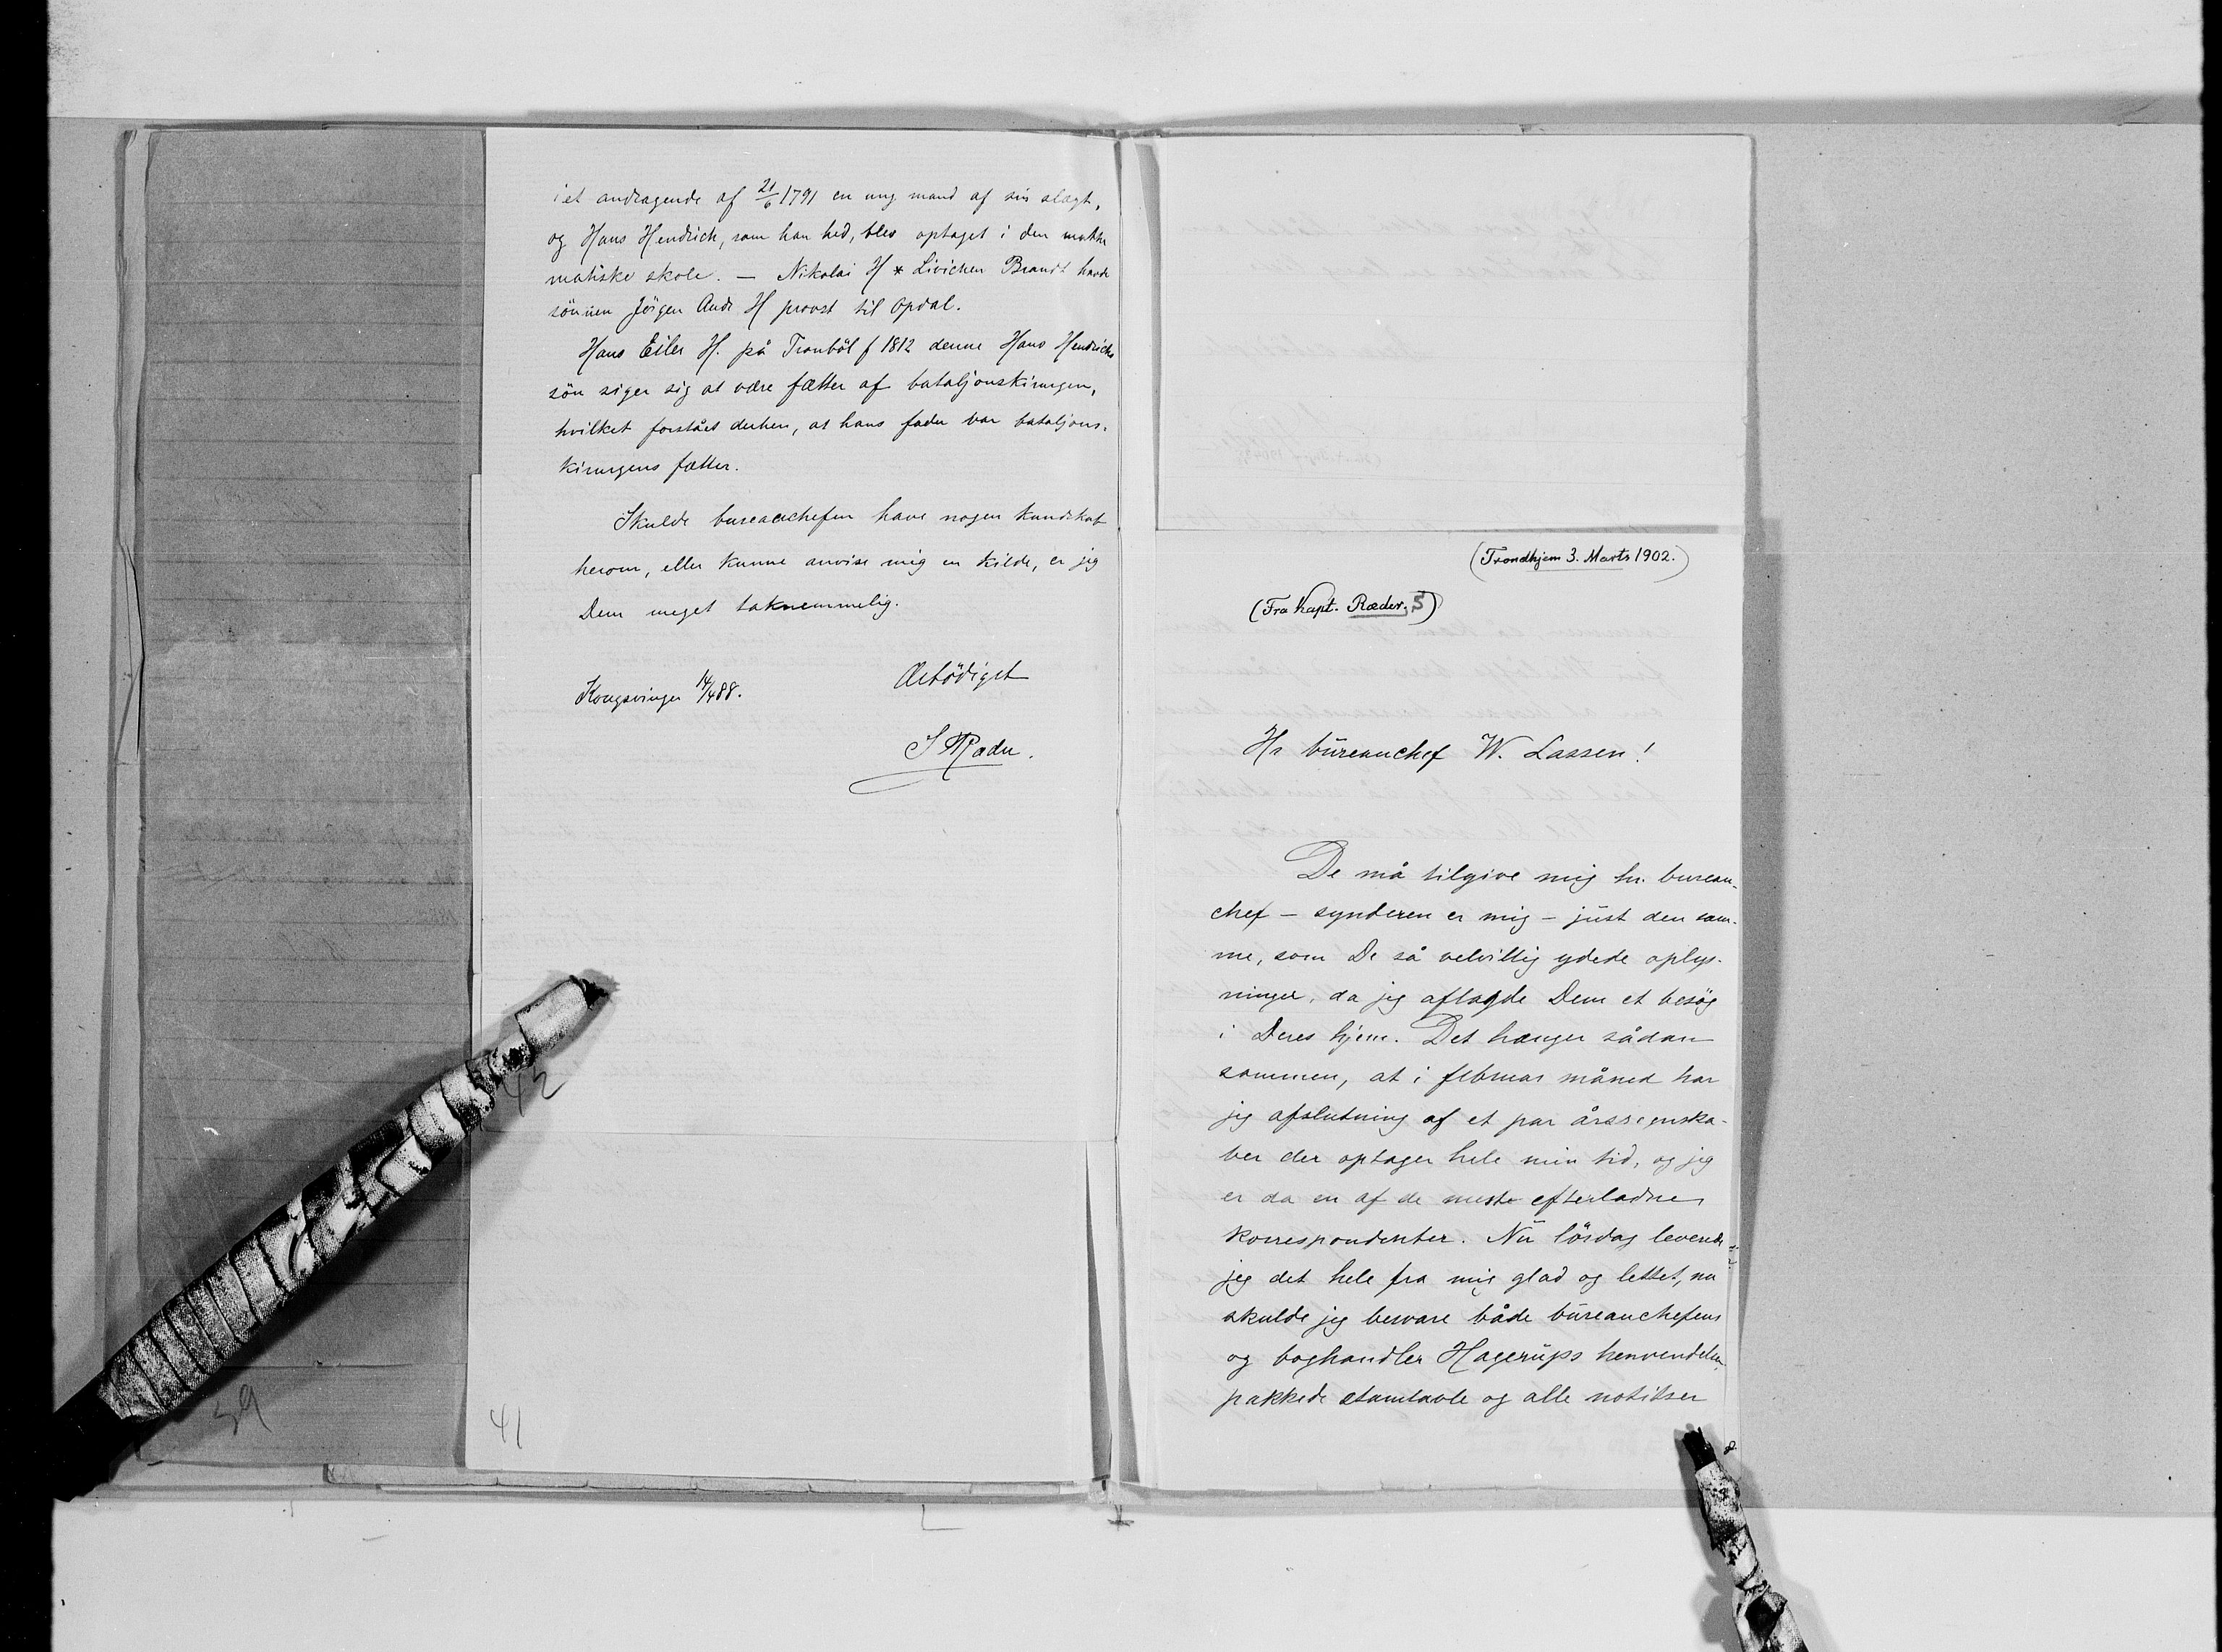 i et andragende af 21/6 1791 en ung mand af sin slægt,
og Hans Hendrich, som han hed, blev optaget i den mathe
matiske skole. — Nikolai H * Livichen Brandt havde
sönnen Jörgen Andr H provst til Opdal.
Hans Eiler H. på Tronböl f 1812 denne Hans Hendrichs
sön siger sig at være fætter af bataljonskirurgen,
hvilket forstået derhen, at hans fader var bataljons-
kirurgens fætter.
Skulde bureauchefen have nogen kundskab
herom, eller kunne anvise mig en kilde, er jeg
Dem meget taknemmelig.
Ærbödigst
Kongsvinger 14/4 88.
J Ræder.
42
39
41
(Trondhjem 3. Marts 1902.)
(Fra Kapt. Ræder. S)
Hr büreauchef W. Lassen!
De må tilgive mig hr. bureau-
chef — synderen er mig — jüst den sam-
me, som De så velvillig ydede oplys-
ninger, da jeg aflagde Dem et besög
i Deres hjem. Det hænger sådan
sammen, at i februar måned har
jeg afslutning af et par årsregnska-
ber der optager hele min tid, og jeg
er da en af de meste efterladne
korrespondenter. Nü lördag leverede
jeg det hele fra mig glad og lettet, nu
skulde jeg besvare både büreauchefens
og boghandler Hagerüps henvendelser,
pakkede stamtavle og alle notitser